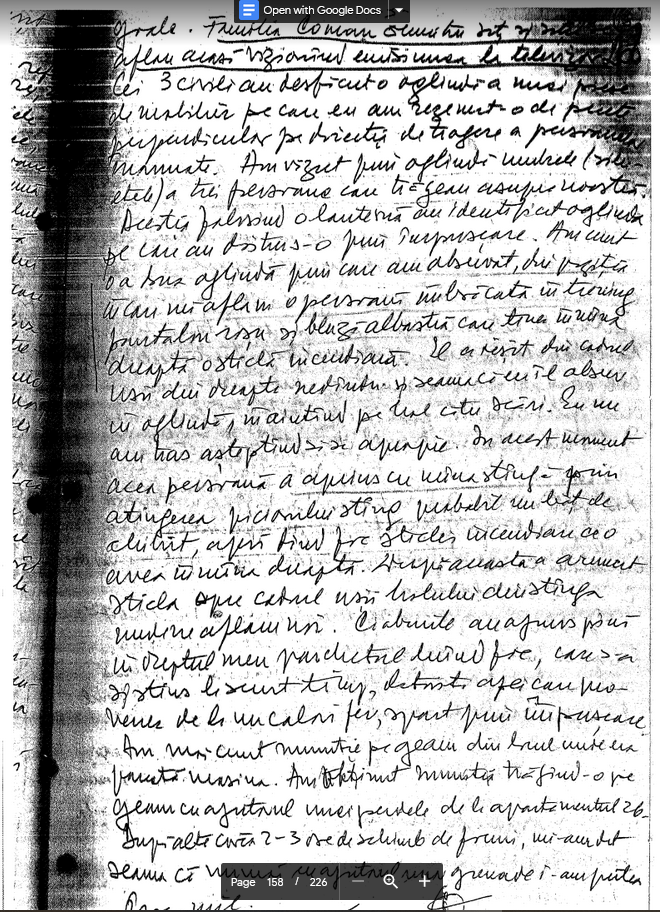 Open with Google Docs
grale. Familia Coman Dumitru soț și soție
aflau acasă vizionînd emisiunea la televizor
Cei 3 civili au desfăcut o oglindă a unei piese
de mobilier pe care eu am rezemat-o de perete
perpendicular pe direcția de tragere a persoanelor
înarmate. Am văzut prin oglindă umbrele (silu-
etele) a trei persoane care trăgeau asupra noastră.
Aceștia folosind o lanternă au identificat oglinda
pe care au distrus-o prin împușcare. Am cerut
o a doua oglindă prin care am observat, din poziția
în care mă aflam o persoană îmbrăcată în trening
pantalon roșu și bluză albastră care ținea în mîna
dreaptă o sticlă incendiară. El a ieșit din cadrul
ușii din dreapta nedîndu-și seama că eu îl observ
în oglindă, înaintînd pe hol către scări. Eu nu
am tras așteptînd să se apropie. În acest moment
acea persoană a aprins cu mîna stîngă prin
atingerea piciorului stîng probabil un băț de
chibrit, apoi dînd foc sticlei incendiare ce o
avea în mîna dreaptă. După aceasta a aruncat
sticla spre cadrul ușii holului din stînga
unde ne aflam noi. Cioburile au ajuns pînă
în dreptul meu parchetul luînd foc, care s-a
stins la scurt timp, datorită apei care pro-
venea de la un calorifer, spart prin împușcare
Am mai cerut muniție pe geam din locul unde era
parcată mașina. Am obținut muniția trăgînd-o pe
geam cu ajutorul unei perdele de la apartamentul 26.
După alte circa 2-3 ore de schimb de focuri, mi-am dat
seama că numai cu ajutorul unor grenade i-am putea
Page 158 / 226